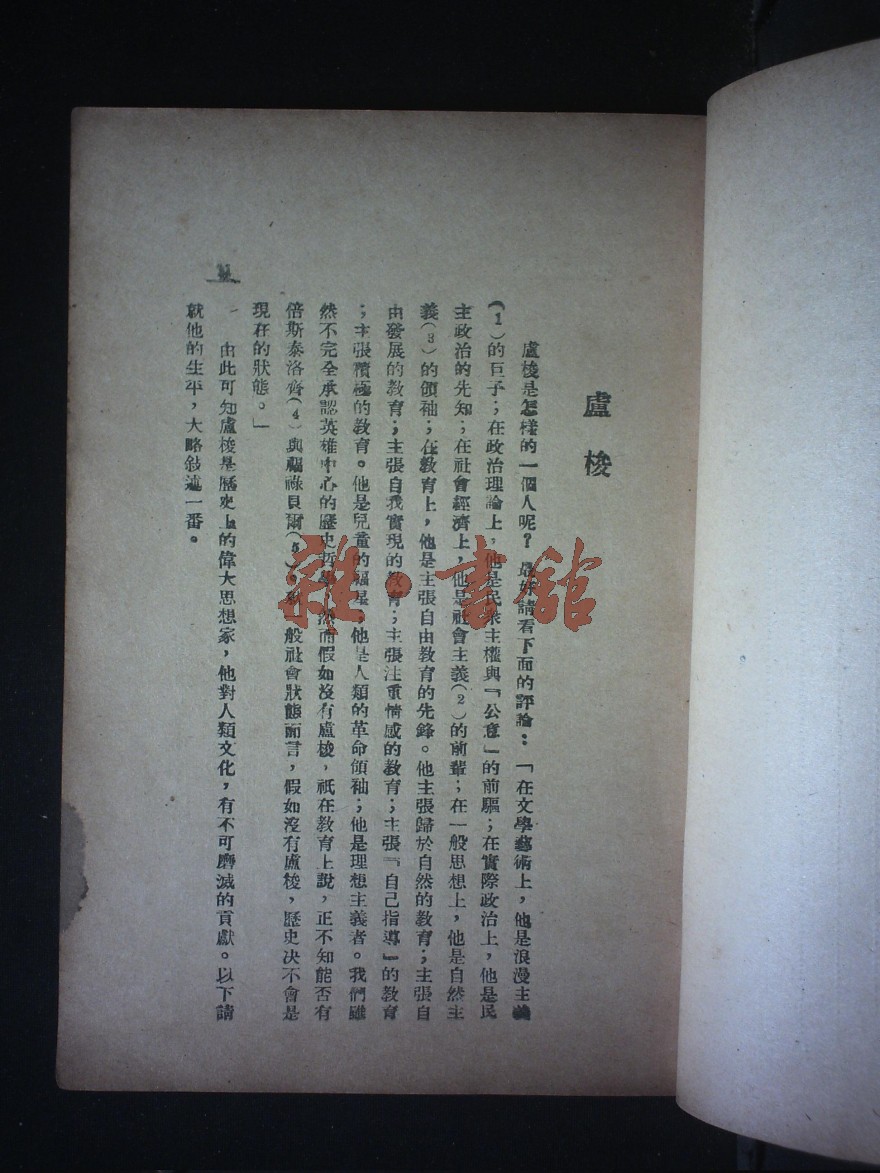 盧梭
盧梭是怎樣的一個人呢?最好請看下面的評論:「在文學藝術上,他是浪漫主義
(1)的巨子;在政治理論上,他是民衆主權與『公意』的前驅;在實際政治上,他是民
主政治的先知;在社會經濟上,他是社會主義(2)的前輩;在一般思想上,他是自然主
義(3)的領袖;在敎育上,他是主張自由敎育的先鋒。他主張歸於自然的敎育;主張自
由發展的敎育;主張自我實現的敎育;主張注重情感的敎育;主張『自己指導』的敎育
;主張積極的敎育。他是兒童的福星;他是人類的革命領袖;他是理想主義者。我們雖
然不完全承認英雄中心的歷史哲學,然而假如沒有盧梭,祇在敎育上說,正不知能否有
倍斯泰洛齊(4)與福祿貝爾(5)。就一般社會狀態而言,假如沒有盧梭,歷史決不會是
現在的狀態。」
由此可知盧梭是歷史上的偉大思想家,他對人類文化,有不可磨滅的貢獻。以下請
就他的生平,大略敍述一番。
雜·書館